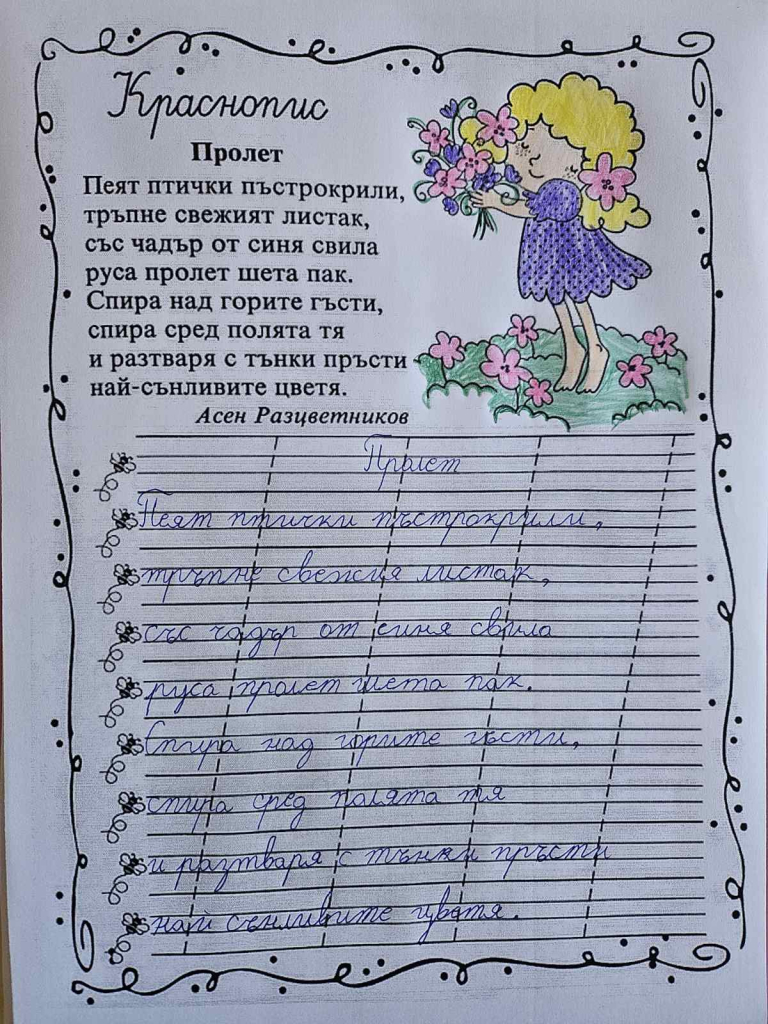 Краснопис
Пролет
Пеят птички пъстрокрили,
тръпне свежият листак,
със чадър от синя свила
руса пролет шета пак.
Спира над горите гъсти,
спира сред полята тя
и разтваря с тънки пръсти
най-сънливите цветя.
Асен Разцветников
Пролет
Пеят птички пъстрокрили,
тръпне свежия листак,
със чадър от синя свила
руса пролет шета пак.
Спира над горите гъсти,
спира сред полята тя
и разтваря с тънки пръсти
най сънливите цветя.